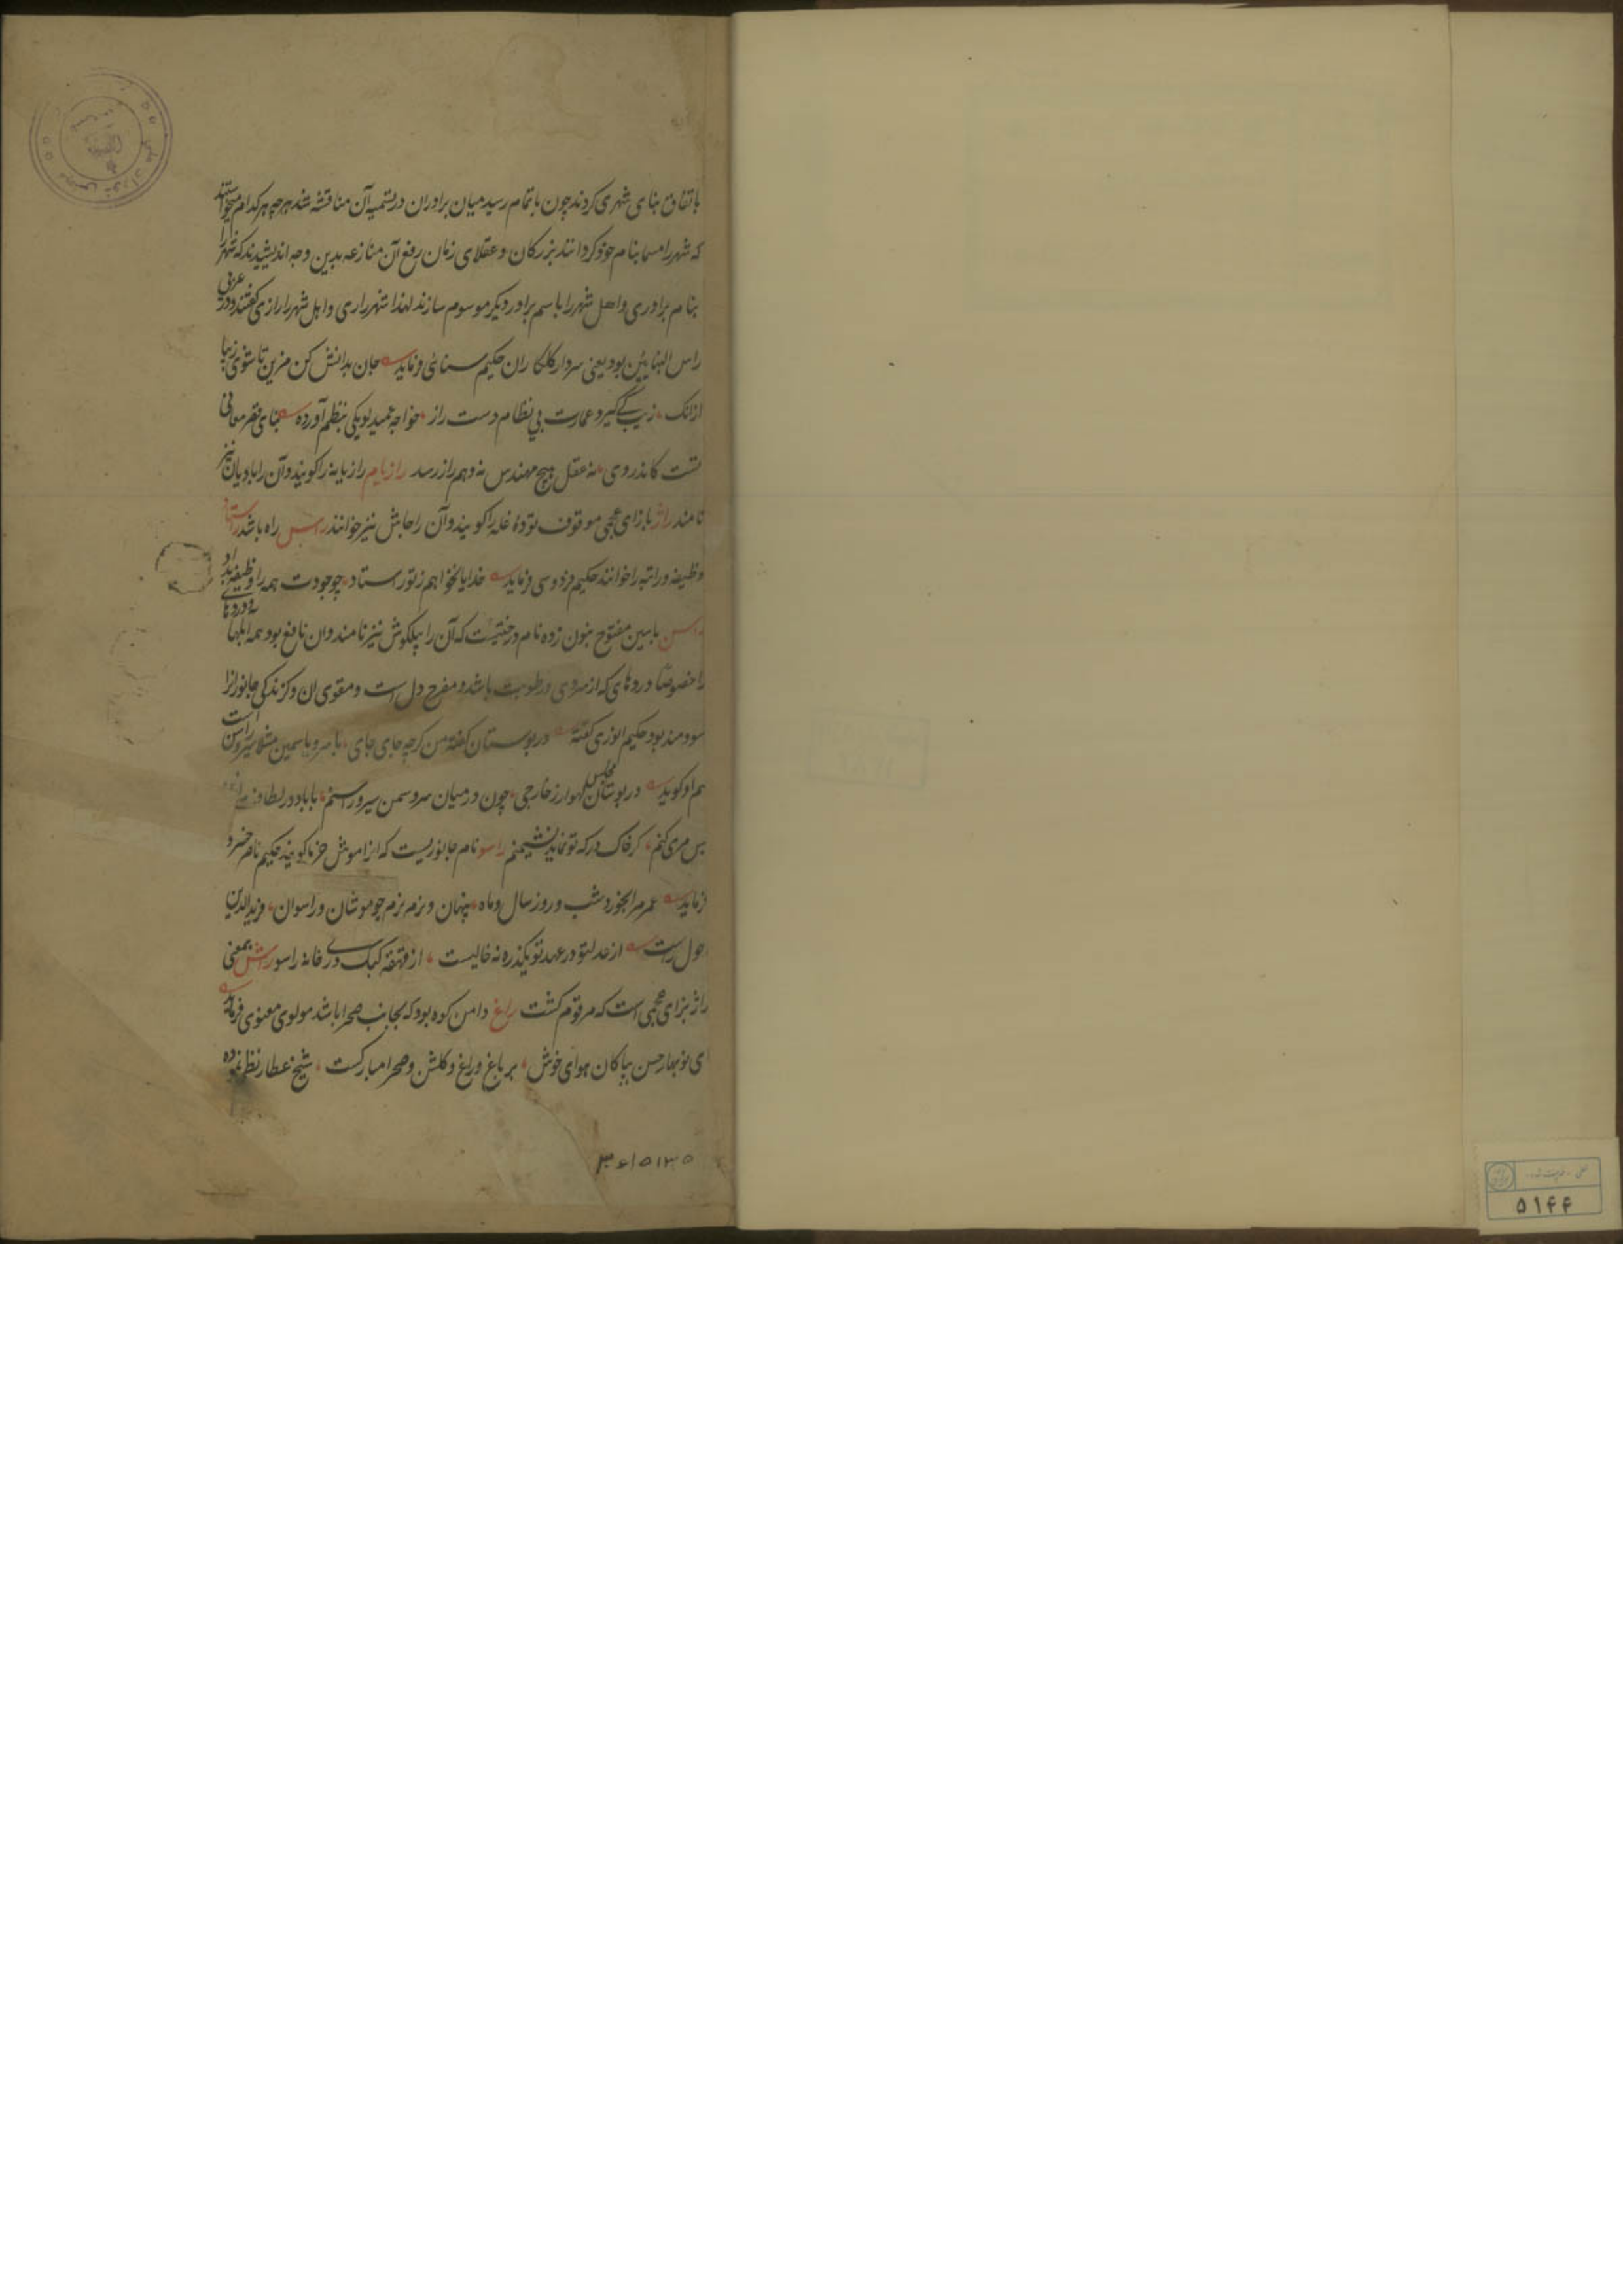 باتفاق بنای شهری کردند چون باتمام رسید میان برادران در تسمیه آن مناقشه شد هرچه هر کدام میخواستند
که شهر را مسما بنام خود کردانند بزرکان و عقلای زمان رفع آن منازعه بدین وجه اندیشیدند که شهر را
بنام برادری و اهل شهر را باسم برادر دیکر موسوم سازند لهذا شهر را ری و اهل شهر را رازی کفتند و در عربی
راس البنایین بود یعنی سردار کلکاران حکیم سنائی فرماید جان بدانش کن مزین تا شوی زیبا
ازانک زیب کی کیرد عمارت بی نظام دست راز خواجه عمید لویکی بنظم آورده بنای قصر معالی
تست کاندر وی نه عقل هیچ مهندس نه وهم راز رسد رازیام رازیانه را کویند و آن را بادیان نیز
نامند راژ بازای عجمی موقوف توده غله را کویند و آن را جاش نیز خوانند راس راه باشد راستاد
وظیفه و راتبه را خوانند حکیم فردوسی فرماید خدایا بخواهم ز تو راستاد چو جودت همه را وظیفه بداد
راسن باسین مفتوح بنون زده نام درختیست که آن را پیلکوش نیز نامند و ان نافع بود همه المها و دردهای
را خصوصا دردهای که از سردی و رطوبت باشد و مفرح دل است و مقوی ان و کزندکی جانورانرا
سودمند بود حکیم انوری کفته در بوستان کفته من کرچه جای جای با سرو یاسمین مثلا سیر و راسن است
هم او کوید در بوستان مجلس لهو ارز خارجی چون در میان سرو سمن سیر و راسنم با باد در لطافت
بس مری کنم کر خاک درکه تو نماید نشیمنم راسو نام جانوریست که انرا موش خرما کویند حکیم ناصر خسرو
فرماید عمر مرا بخورد شب و روز سال و ماه پنهان و نرم نرم چو موشان و راسوان فریدالدین
احول راست از عدل تو در عهد تو یکذره نه خالیست از قهقهه کبک دری خانه راسو راش بمعنی
راژ بزای عجمی است که مرقوم کشت راغ دامن کوه بود که بجانب صحرا باشد مولوی معنوی فرماید
ای نوبهار حسن بیا کان هوای خوش بر باغ و راغ و کلشن و صحرا مبارکست شیخ عطار نظم نموده
۵۱۴۴